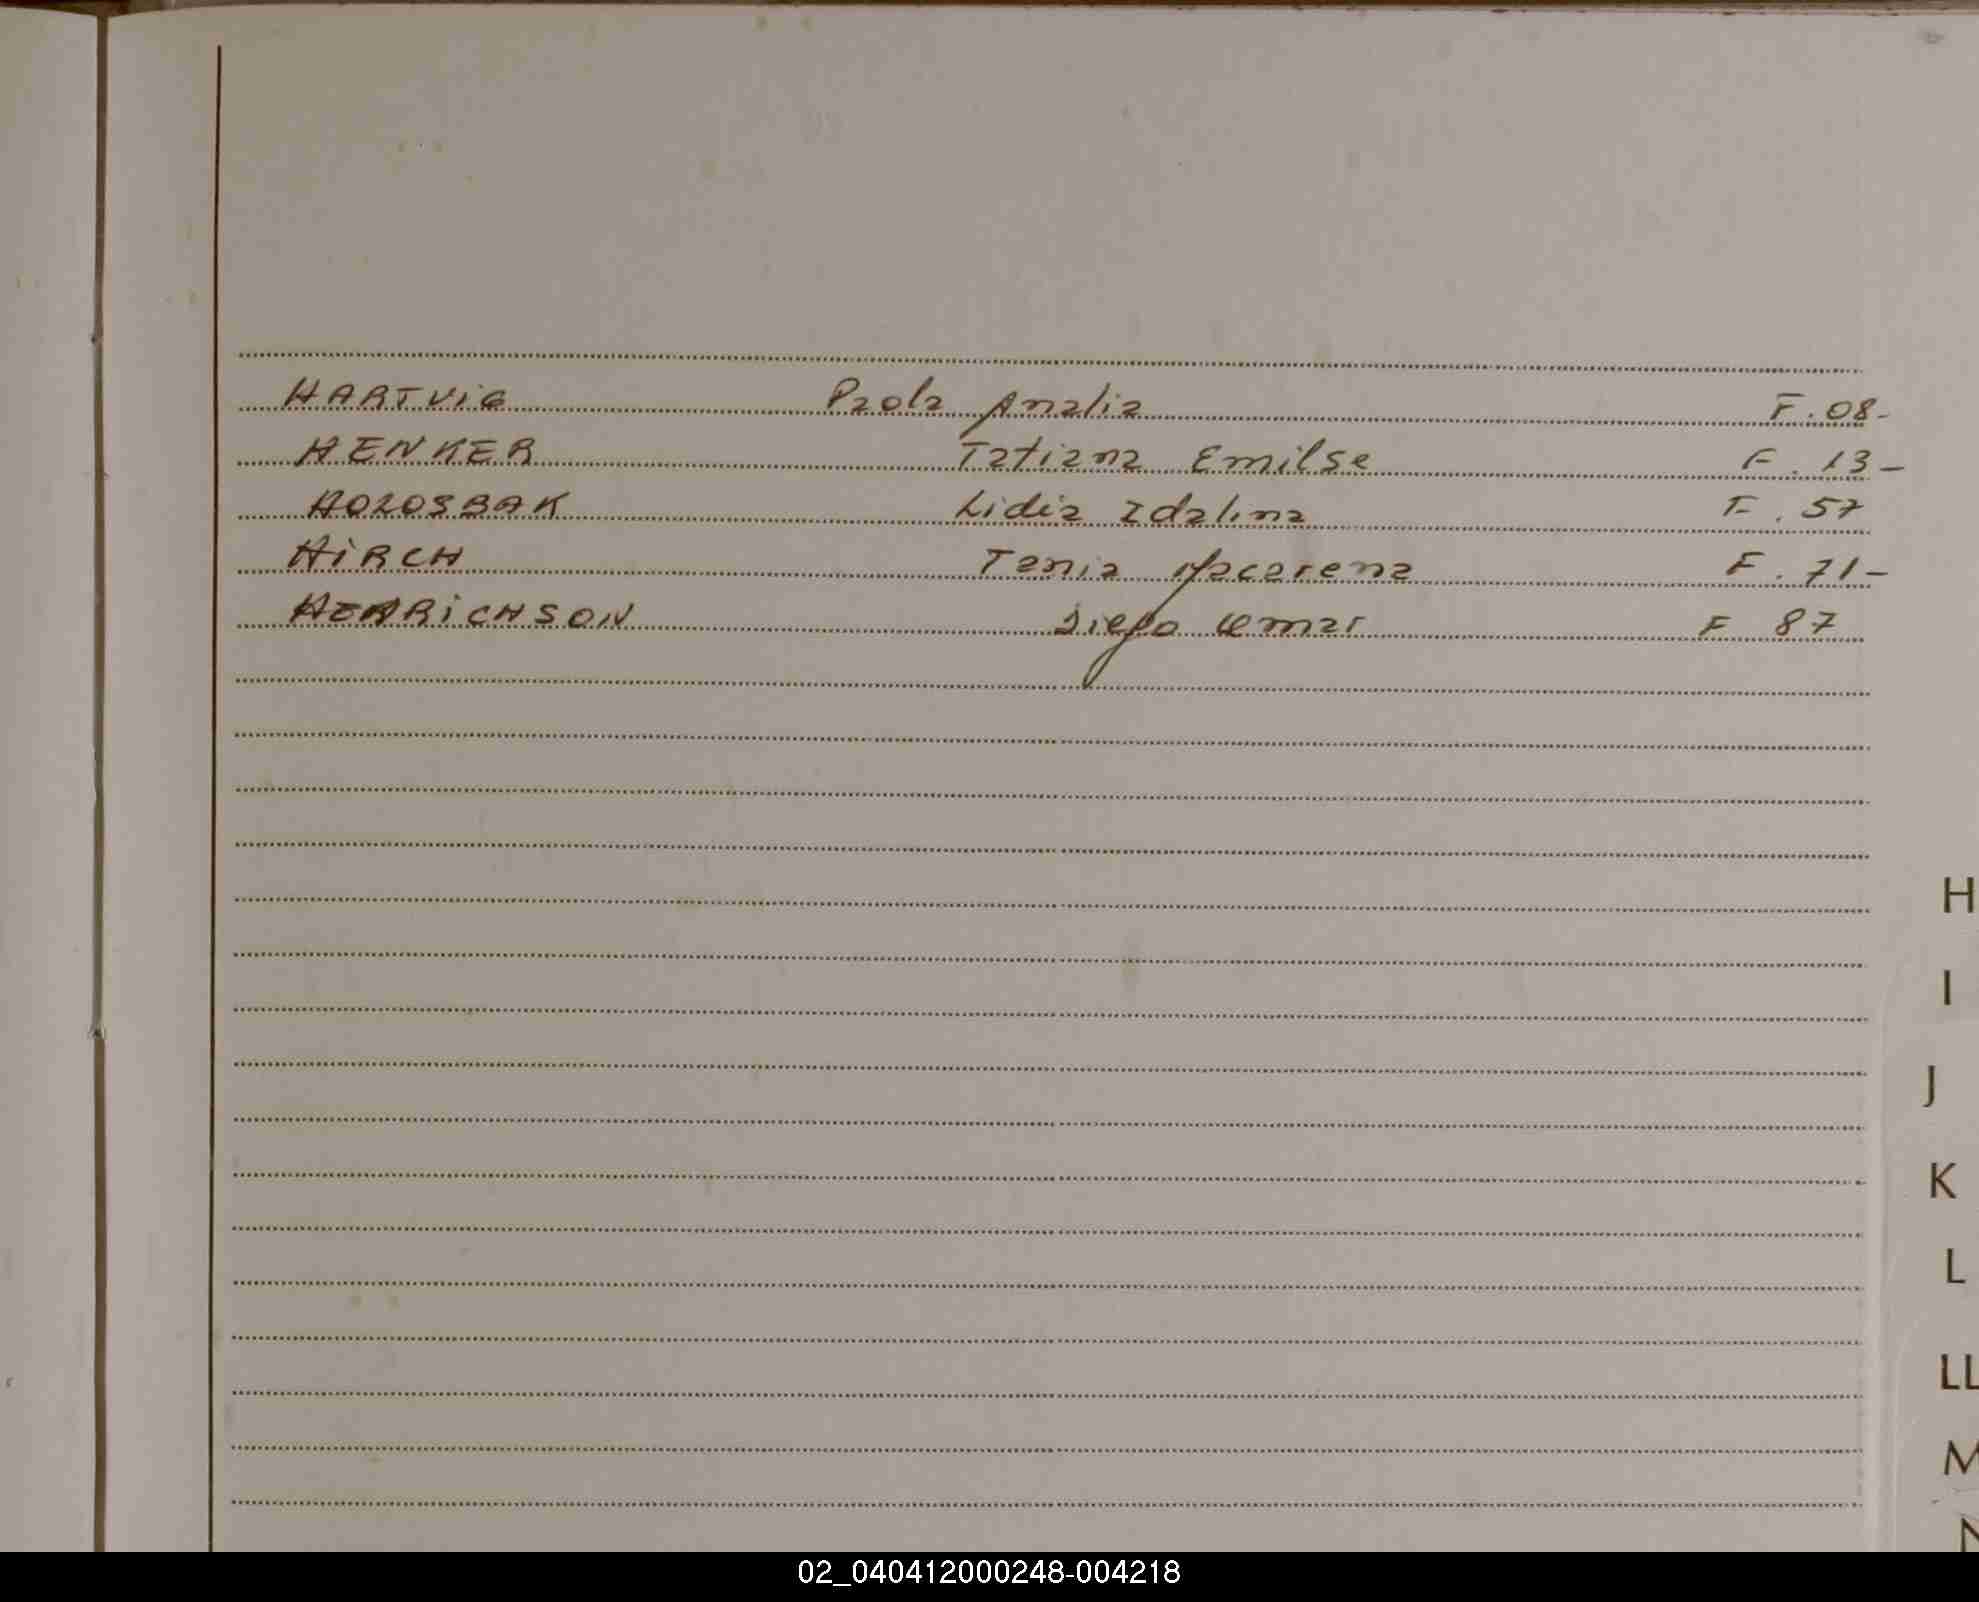 HARTViG Paola Analia F. 08-
HENKER Tatiana Emilse F. 13-
HOLOSBAK Lidia Idalina F. 57
HiRCH Tania Macarena F. 71-
HENRiCHSON Diego Omar F 87
H
I
J
K
L
LL
M
N
02_040412000248-004218